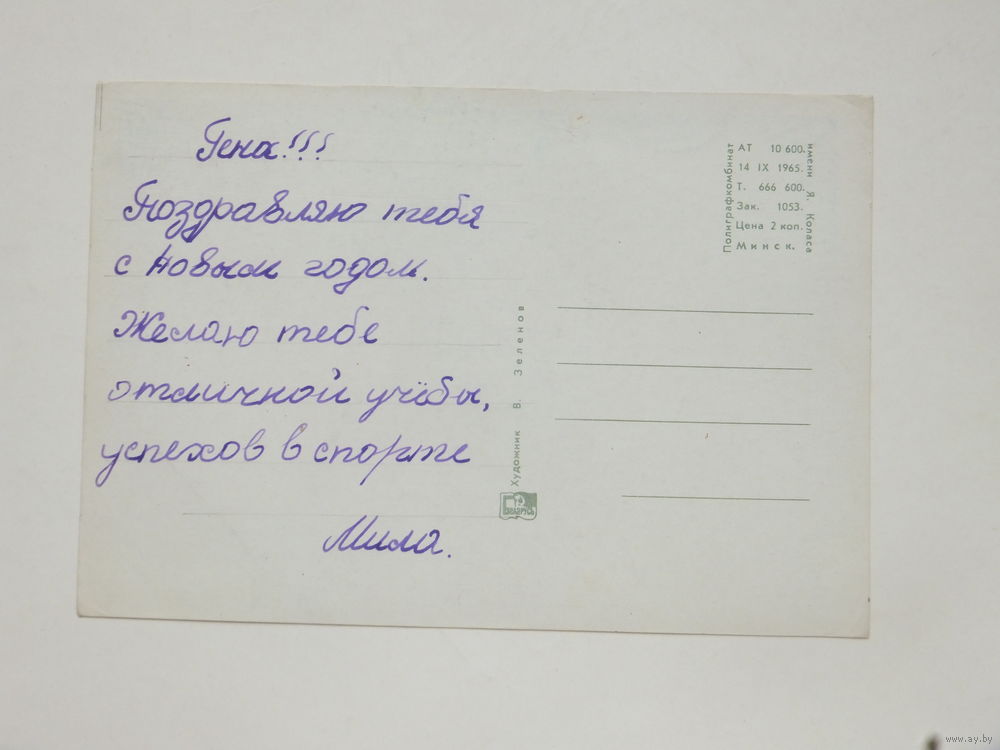 Гена!!!
Поздравляю тебя
с новым годом.
Желаю тебе
отличной учёбы,
успехов в спорте
Мила.
Художник В. Зеленов
БЕЛАРУСЬ
Полиграфкомбинат
АТ 10 600.
14 IX 1965.
Т. 666 600.
Зак. 1053.
Цена 2 коп.
Минск.
имени Я. Коласа
www.ay.by